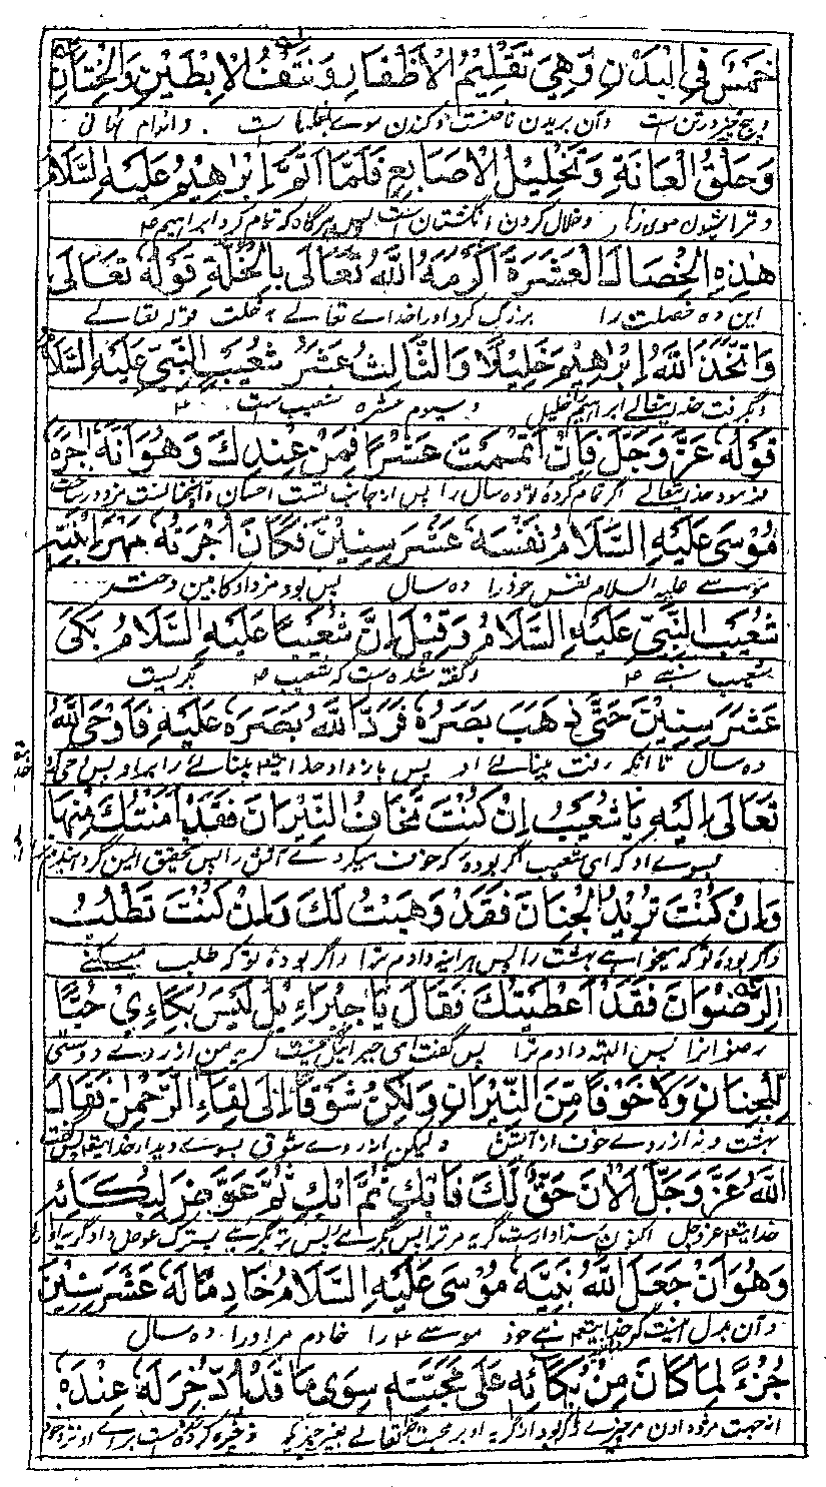 خَمْسٌ فِي الْبَدَنِ وَهِيَ تَقْلِيْمُ الْاَظْفَارِ وَنَتْفُ الْاِبْطَيْنِ وَالْخِتَانُ
و پنج چیز در تن است و آن بریدن ناخنست و کندن موے بغلها ست و اندام نهانی
وَحَلْقُ الْعَانَةِ وَتَخْلِيْلُ الْاَصَابِعِ فَلَمَّا اَتَمَّ اِبْرٰهِيْمُ عَلَيْهِ السَّلَامُ
و تراشیدن موی زهار و خلال کردن انگشتان است پس هرگاه که تمام کرد ابراهیم ع
هٰذِهِ الْخِصَالَ الْعَشَرَةَ اَكْرَمَهُ اللّٰهُ تَعَالٰى بِالْخُلَّةِ قَوْلُهٗ تَعَالٰى
این ده خصلت را بزرگ کرد او را خداے تعالے به خلت قوله تعالے
وَاتَّخَذَ اللّٰهُ اِبْرٰهِيْمَ خَلِيْلًا وَالثَّالِثُ عَشَرُ شُعَيْبِ النَّبِيِّ عَلَيْهِ السَّلَامُ
و بگرفت خدایتعالے ابراهیم را خلیل و سیوم عشره شعیب ست ع
قَوْلُهٗ عَزَّ وَجَلَّ فَاِنْ اَتْمَمْتَ عَشْرًا فَمِنْ عِنْدِكَ وَهُوَ اَنَّهٗ اٰجَرَهٗ
فرمود خدایتعالے اگر تمام کردهٔ تو ده سال را پس از جانب تست احسان و آنچنانست مزدور ساخت
مُوْسٰى عَلَيْهِ السَّلَامُ نَفْسَهٗ عَشَرَ سِنِيْنَ فَكَانَ اُجْرَتُهٗ مَهْرَ ابْنَتِهٖ
موسے علیه السلام نفس خود را ده سال پس بود مزد او کابین دختر
شُعَيْبِ النَّبِيِّ عَلَيْهِ السَّلَامُ وَقِيْلَ اِنَّ شُعَيْبًا عَلَيْهِ السَّلَامُ بَكٰى
شعیب نبے ع و گفته شده ست که شعیب ع بگریست
عَشَرَ سِنِيْنَ حَتّٰى ذَهَبَ بَصَرُهٗ فَرَدَّ اللّٰهُ بَصَرَهٗ عَلَيْهِ فَاَوْحَى اللّٰهُ
ده سال تا آنکه رفت بینائے او پس باز داد خدایتع بینائے را بر او پس وحی کرد
تَعَالٰى اِلَيْهِ يَا شُعَيْبُ اِنْ كُنْتَ تَخَافُ النِّيْرَانَ فَقَدْ اٰمَنْتُكَ مِنْهَا
بسوے او که ای شعیب اگر بودهٔ که خوف میکردے آتش را پس تحقیق ایمن گردانیدم
وَاِنْ كُنْتَ تُرِيْدُ الْجِنَانَ فَقَدْ وَهَبْتُ لَكَ وَاِنْ كُنْتَ تَطْلُبُ
و اگر بودهٔ تو که میخواهے بهشت را پس هرآینه دادم ترا و اگر بودهٔ تو که طلب میکنے
الرِّضْوَانَ فَقَدْ اَعْطَيْتُكَ فَقَالَ يَا جِبْرَاءِيْلُ لَيْسَ بُكَاءِيْ حُبًّا
رضوانرا پس البته دادم ترا پس گفت ای جبرائیل نیست گریهٔ من از روے دوستی
لِلْجِنَانِ وَلَا خَوْفًا مِّنَ النِّيْرَانِ وَلٰكِنْ شَوْقًا اِلٰى لِقَاءِ الرَّحْمٰنِ فَقَالَ
بهشت و نه از روے خوف از آتش و لیکن از روے شوق بسوے دیدار خدایتع پس گفت
اللّٰهُ عَزَّ وَجَلَّ الْاٰنَ حَقٌّ لَكَ فَابْكِ ثُمَّ ابْكِ ثُمَّ عَوَّضَ لِبُكَائِهٖ
خدایتع عز وجل اکنون سزاوارست گریه مر ترا پس بگرے پس بگرے پستر عوض داد گریه او را
وَهُوَ اَنْ جَعَلَ اللّٰهُ نَبِيَّهٗ مُوْسٰى عَلَيْهِ السَّلَامُ خَادِمًا لَهٗ عَشَرَ سِنِيْنَ
و آن بدل اینست که خدایتع نبے خود موسے ع را خادم مر او را ده سال
جُزْءً لِمَا كَانَ مِنْ بُكَائِهٖ عَلٰى مَحَبَّتِهٖ سِوٰى مَا قَدِ ادَّخَرَ لَهٗ عِنْدَهٗ
از جهت مزد دادن مر چیزے که بود از گریه او بر محبت تعالے بغیر چیزیکه ذخیره کرده است براے او نزد خود